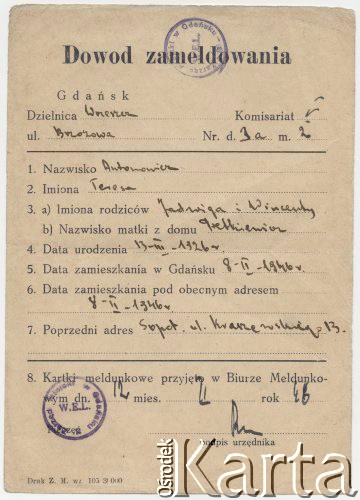 Dowod zameldowania
Gdańsk
Dzielnica Wrzeszcz Komisariat V
ul. Brzozowa Nr. d. 3a m. 2
1. Nazwisko Antonowicz
2. Imiona Teresa
3. a) Imiona rodziców Jadwiga i Wincenty
b) Nazwisko matki z domu
4. Data urodzenia 13-III-1926 r.
5. Data zamieszkania w Gdańsku 8-II-1946 r.
6. Data zamieszkania pod obecnym adresem
8-II-1946 r.
7. Poprzedni adres Sopot, ul. Kraszewskiego 13.
8. Kartki meldunkowe przyjęte w Biurze Meldunko-
wym dn. 12 mies. 2 rok 46
W.E.L.
podpis urzędnika
Druk Z. M. wz. 105
Ośrodek
Karta